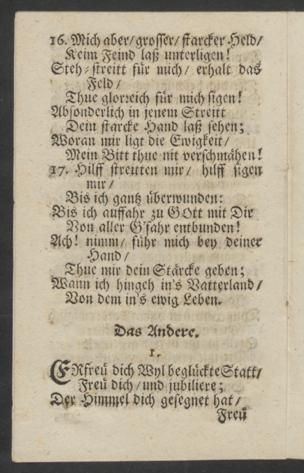 16. Mich aber/ grosser/ starcker Held/
Keim Feind laß unterligen!
Steh-streitt für mich/ erhalt das
Feld/
Thue glorreich für mich sigen!
Absonderlich in jenem Streitt
Dein starcke Hand laß sehen;
Woran mir ligt die Ewigkeit/
Mein Bitt thue nit verschmähen!
17. Hilff streitten mir/ hilff sigen
mir/
Bis ich gantz überwunden:
Bis ich auffahr zu GOtt mit Dir
Von aller G'fahr entbunden!
Ach! nimm/ führ mich bey deiner
Hand/
Thue mir dein Stärcke geben;
Wann ich hingeh in's Vatterland/
Von dem in's ewig Leben.
Das Andere.
1.
ERfreü dich Wyl beglückte Statt/
Freü dich/ und jubiliere;
Der Himmel dich gesegnet hat/
Freü